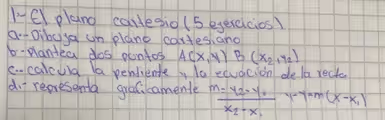 1- El plano cartesio (5 ejercicios)
a-Dibuja un plano cartesiano
b-plantea dos puntos A(x,y) B(x2,y2)
c-calcula la pendiente y la ecuación de la recta
d.-representa graficamente m=y2-y1/x2-x1 y-y=m(x-x1)